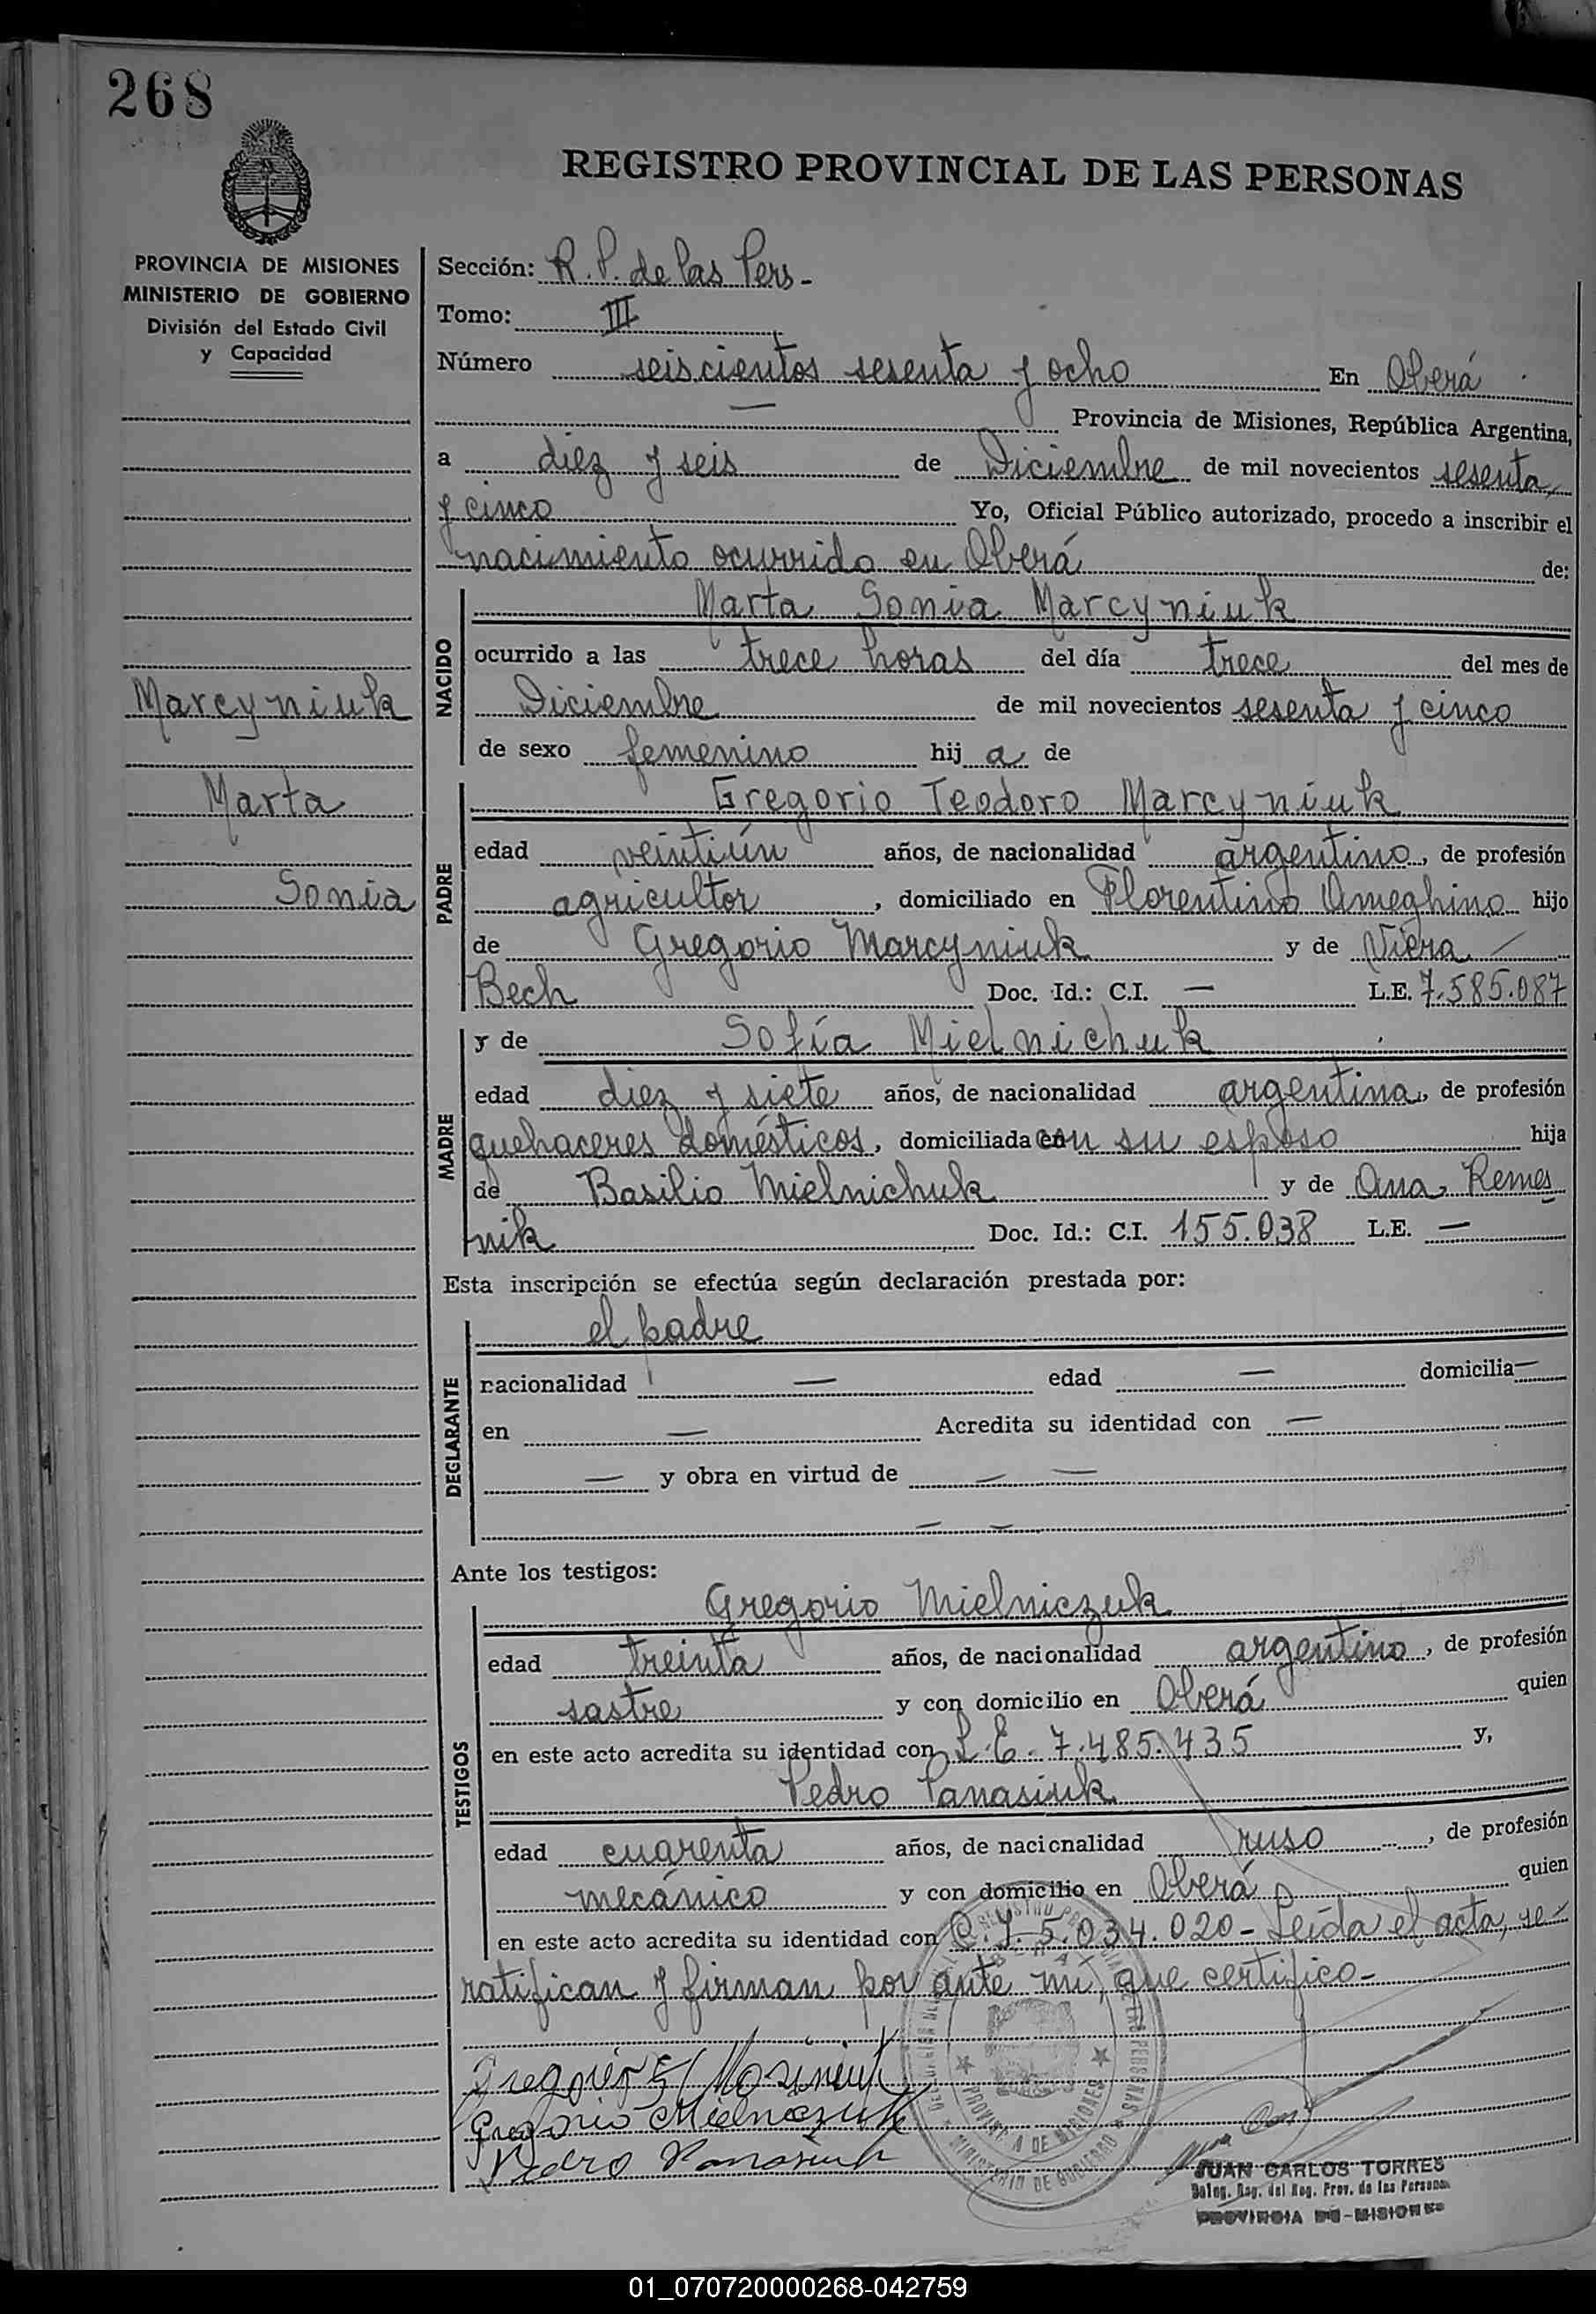 268
REGISTRO PROVINCIAL DE LAS PERSONAS
PROVINCIA DE MISIONES
MINISTERIO DE GOBIERNO
División del Estado Civil
y Capacidad
Marcyniuk
Marta
Sonia
Sección: R. P. de las Pers-
Tomo: III
Número seiscientos sesenta y ocho En Oberá
— Provincia de Misiones, República Argentina,
a diez y seis de Diciembre de mil novecientos sesenta
y cinco Yo, Oficial Público autorizado, procedo a inscribir el
nacimiento ocurrido en Oberá de:
NACIDO
Marta Sonia Marcyniuk
ocurrido a las trece horas del día trece del mes de
Diciembre de mil novecientos sesenta y cinco
de sexo femenino hij a de
PADRE
Gregorio Teodoro Marcyniuk
edad veintiún años, de nacionalidad argentino, de profesión
agricultor, domiciliado en Florentino Ameghino hijo
de Gregorio Marcyniuk y de Viera
Bech Doc. Id.: C.I. — L.E. 7.585.087
MADRE
y de Sofía Mielnichuk
edad diez y siete años, de nacionalidad argentina, de profesión
quehaceres domésticos, domiciliada con su esposo hija
de Basilio Mielnichuk y de Ana Remes
nik Doc. Id.: C.I. 155.038 L.E. —
Esta inscripción se efectúa según declaración prestada por:
DECLARANTE
el padre
nacionalidad — edad — domicilia—
en — Acredita su identidad con —
— y obra en virtud de — —
— —
Ante los testigos:
TESTIGOS
Gregorio Mielniczuk
edad treinta años, de nacionalidad argentino, de profesión
sastre y con domicilio en Oberá quien
en este acto acredita su identidad con L.E. 7.485.435 y,
Pedro Panasiuk
edad cuarenta años, de nacionalidad ruso, de profesión
mecánico y con domicilio en Oberá quien
en este acto acredita su identidad con C.I. 5.034.020- Leída el acta, se
ratifican y firman por ante mi, que certifico-
Gregorio Mielniczuk
Pedro Panasiuk
PROVINCIA DE MISIONES
MINISTERIO DE GOBIERNO
JUAN CARLOS TORRES
Deleg. Reg. del Reg. Prov. de las Personas
PROVINCIA DE MISIONES
01_070720000268-042759